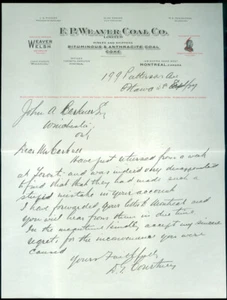 E.P. WEAVER COAL CO.
LIMITED
BITUMINOUS & ANTHRACITE COAL
COKE
WEAVER
WELSH
MONTREAL, CANADA
199 Patterson Av
Ottawa
John A
Ont
Dear Mr
Have just returned from a week
at Toronto and was indeed very disappointed
to find that they had made such a
stupid mistake in your account
I have forwarded your letter to Montreal and
you will hear from them in due time
In the meantime kindly accept my sincere
regret for the inconvenience you were
caused
Yours
Courtney